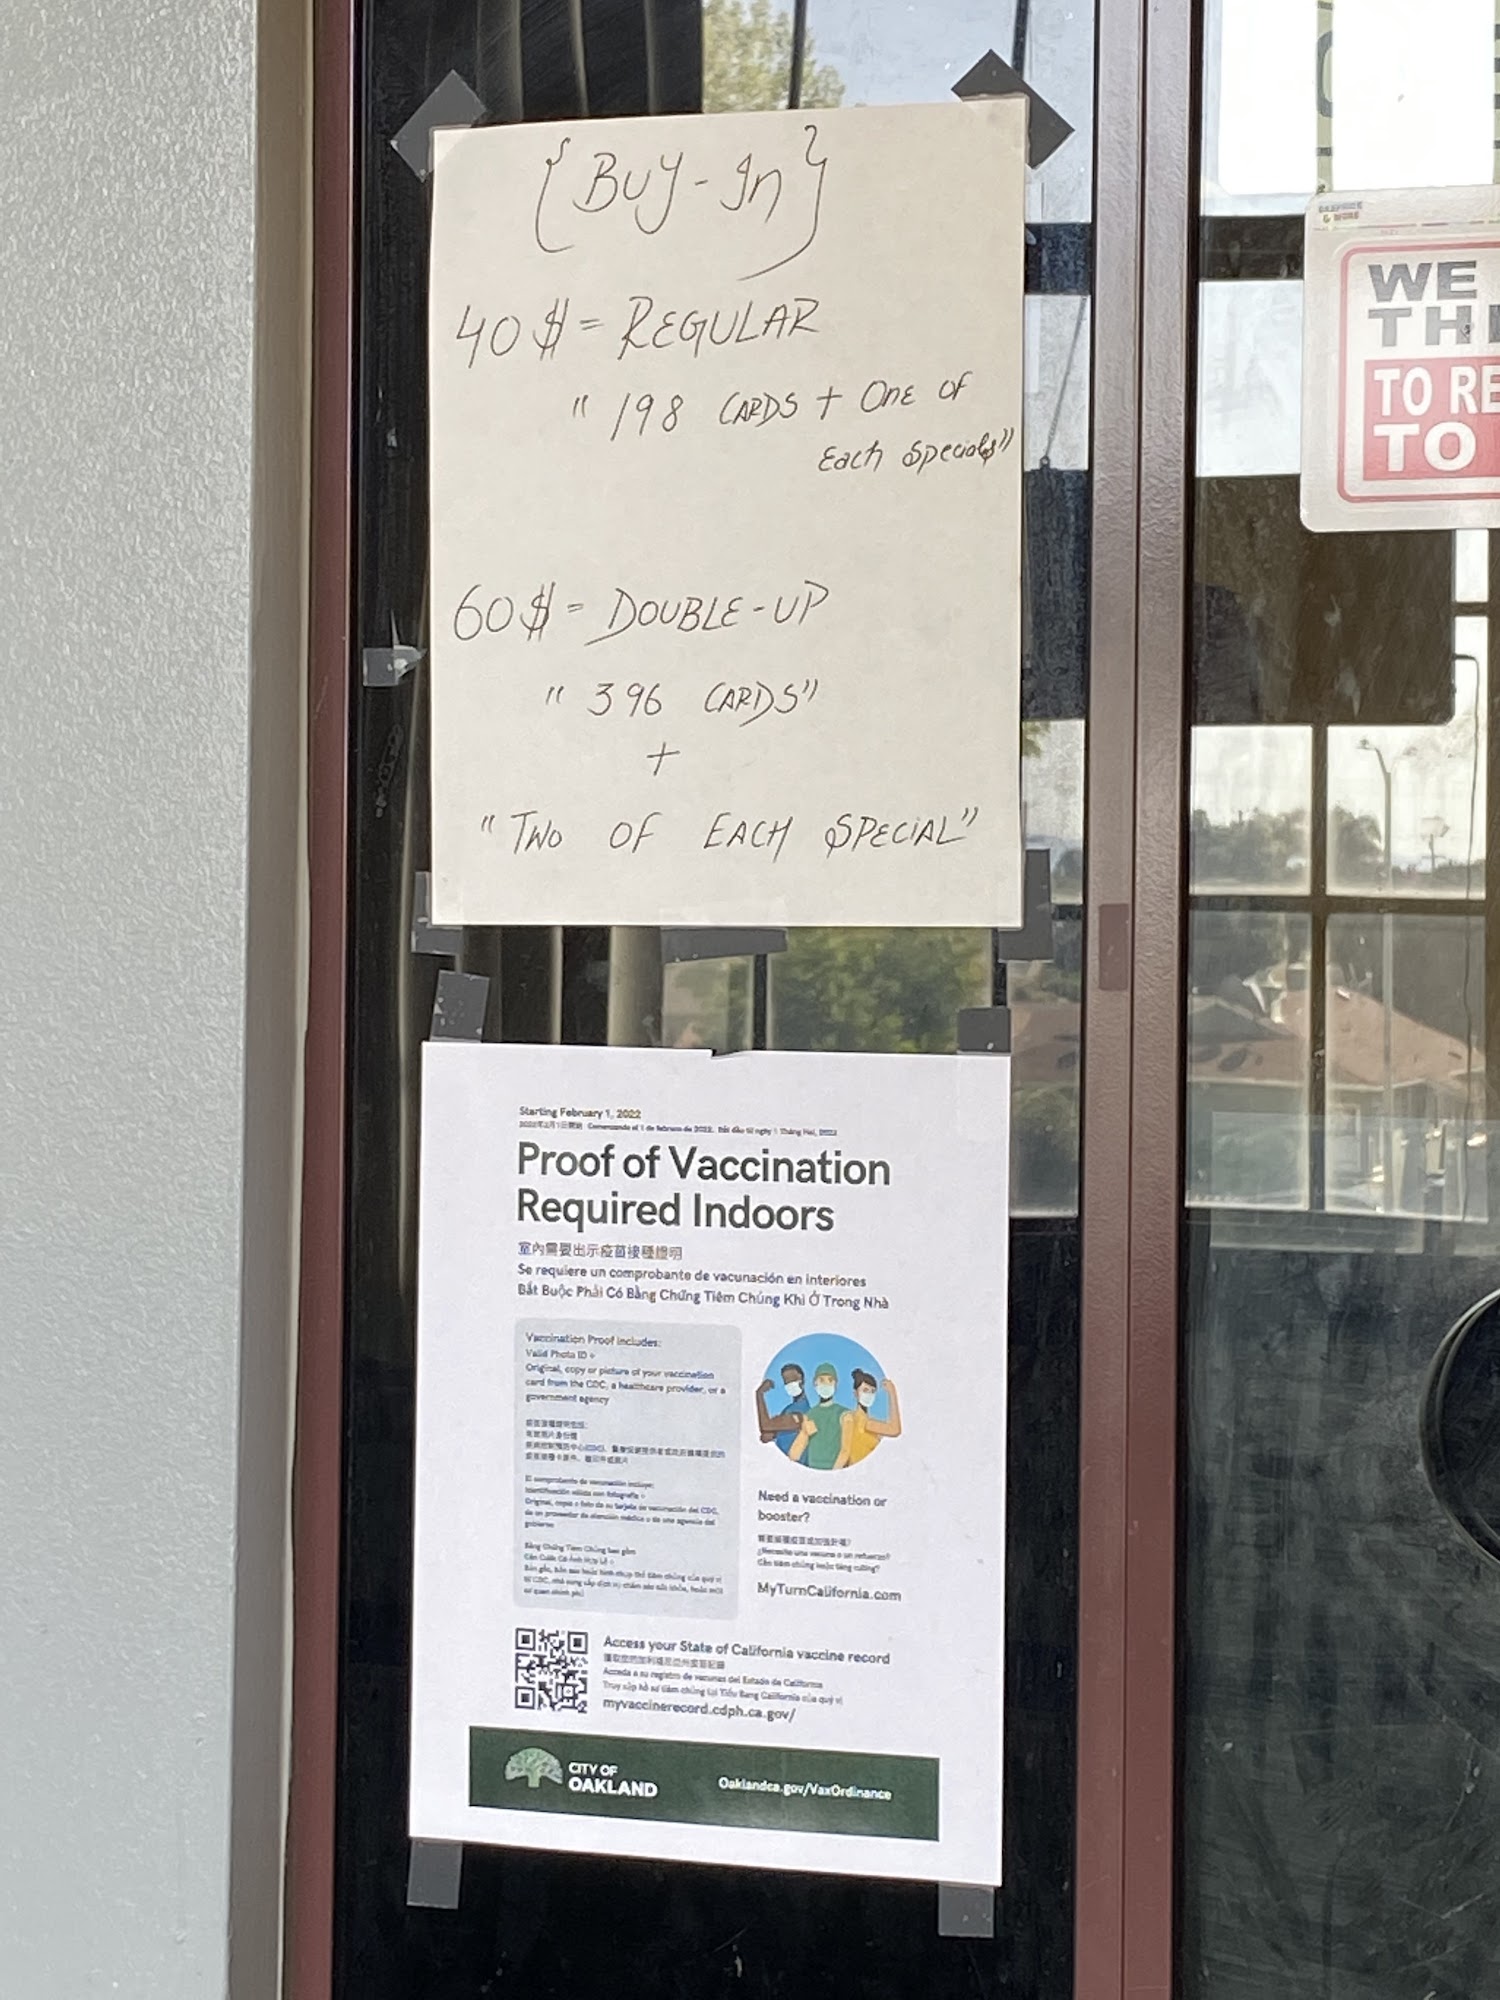 {Buy-In}
40$ = REGULAR
" 198 CARDS + One of
Each Specials"
60$ = DOUBLE-UP
" 396 CARDS"
+
"TWO OF EACH SPECIAL"
WE
TO RE
TO
Starting February 1, 2022
2022年2月1日開始 Comenzando el 1 de febrero de 2022. Bắt đầu từ ngày 1 Tháng Hai, 2022
Proof of Vaccination
Required Indoors
室內需要出示疫苗接種證明
Se requiere un comprobante de vacunación en interiores
Bắt Buộc Phải Có Bằng Chứng Tiêm Chủng Khi Ở Trong Nhà
Vaccination Proof includes:
Valid Photo ID +
Original, copy or picture of your vaccination
card from the CDC, a healthcare provider, or a
government agency
El comprobante de vacunación incluye:
Identificación válida con fotografía +
Original, copia o foto de su tarjeta de vacunación del CDC,
de un proveedor de atención médica o de una agencia del
gobierno
Need a vaccination or
booster?
¿Necesita una vacuna o un refuerzo?
MyTurnCalifornia.com
Access your State of California vaccine record
Acceda a su registro de vacunas del Estado de California
Truy cập hồ sơ tiêm chủng tại Tiểu Bang California của quý vị
myvaccinerecord.cdph.ca.gov/
CITY OF
OAKLAND
Oaklandca.gov/VaxOrdinance